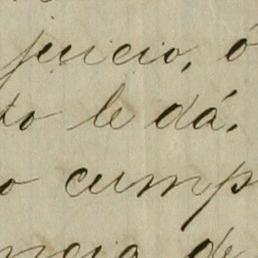 juicio, ó
to le dá.
o cump
ncia de